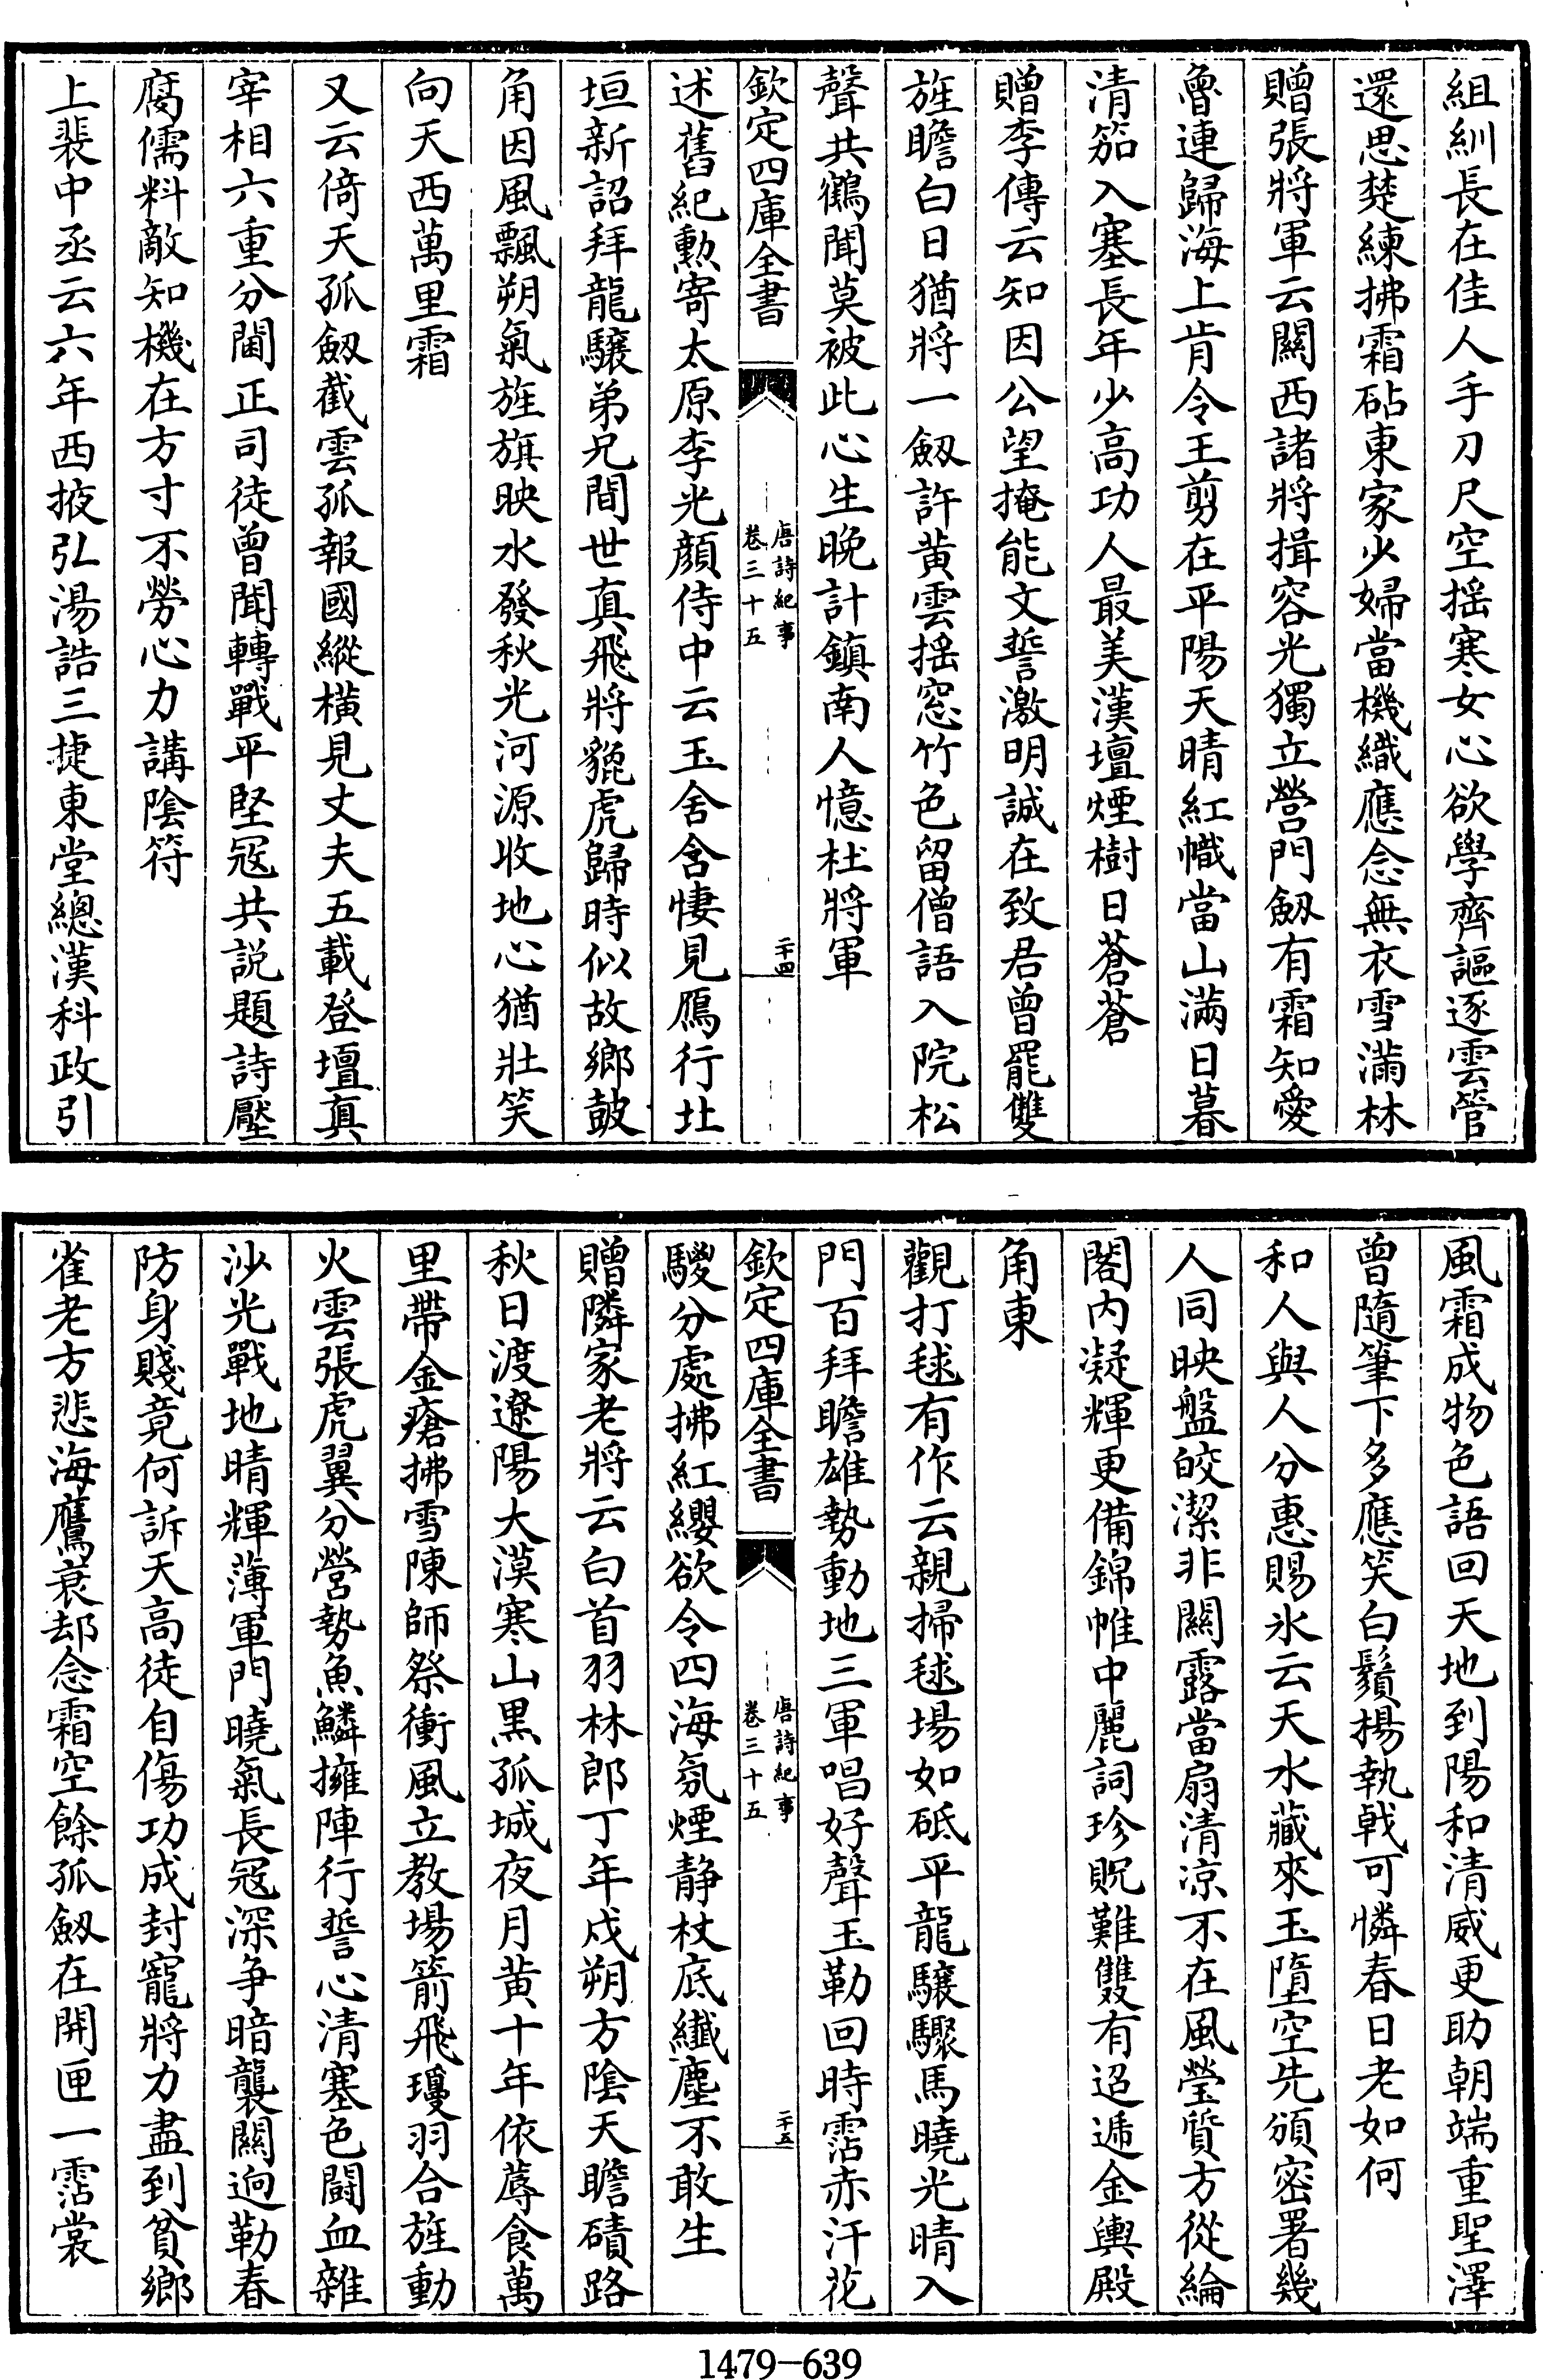 組紃長在佳人手刀尺空揺寒女心欲學齊謳逐雲管
還思楚練拂霜砧東家少婦當機織應念無衣雪滿林
贈張將軍云闗西諸將揖容光獨立營門劔有霜知愛
魯連歸海上肯令王剪在平陽天晴紅幟當山滿日暮
清笳入塞長年少髙功人最美漢壇煙樹日蒼蒼
贈李傳云知因公望掩能文誓激明誠在致君曾罷雙
旌瞻白日猶將一劔許黄雲揺窓竹色留僧語入院松
聲共鶴聞莫被此心生晚計鎮南人憶杜將軍
欽定四庫全書
唐詩紀事
卷三十五
二十四
述舊紀勲寄太原李光顔侍中云玉舍含悽見鴈行北
垣新詔拜龍驤弟兄間世真飛將貔虎歸時似故鄉鼓
角因風飄朔氣旌旗映水發秋光河源收地心猶壯笑
向天西萬里霜
又云倚天孤劔截雲孤報國縱橫見丈夫五載登壇真
宰相六重分閫正司徒曾聞轉戰平堅寇共説題詩壓
腐儒料敵知機在方寸不勞心力講陰符
上裴中丞云六年西掖弘湯誥三捷東堂總漢科政引
風霜成物色語回天地到陽和清威更助朝端重聖澤
曾隨筆下多應笑白鬚楊執戟可憐春日老如何
和人與人分惠賜氷云天水藏來玉墮空先頒密署幾
人同映盤皎潔非闗露當扇清凉不在風瑩質方從綸
閣内凝輝更備錦帷中麗詞珍貺難雙有迢遞金輿殿
角東
觀打毬有作云親掃毬場如砥平龍驤驟馬曉光晴入
門百拜瞻雄勢動地三軍唱好聲玉勒回時霑赤汗花
欽定四庫全書
唐詩紀事
卷三十五
二十五
騣分處拂紅纓欲令四海氛煙静杖底纎塵不敢生
贈隣家老將云白首羽林郎丁年戍朔方陰天瞻磧路
秋日渡遼陽大漠寒山黒孤城夜月黄十年依蓐食萬
里帶金瘡拂雪陳師祭衝風立教場箭飛瓊羽合旌動
火雲張虎翼分營勢魚鱗擁陣行誓心清塞色鬬血雜
沙光戰地晴輝薄軍門曉氣長寇深争暗襲闗逈勒春
防身賤竟何訴天髙徒自傷功成封寵將力盡到貧鄉
雀老方悲海鷹衰却念霜空餘孤劔在開匣一霑裳
1479-639